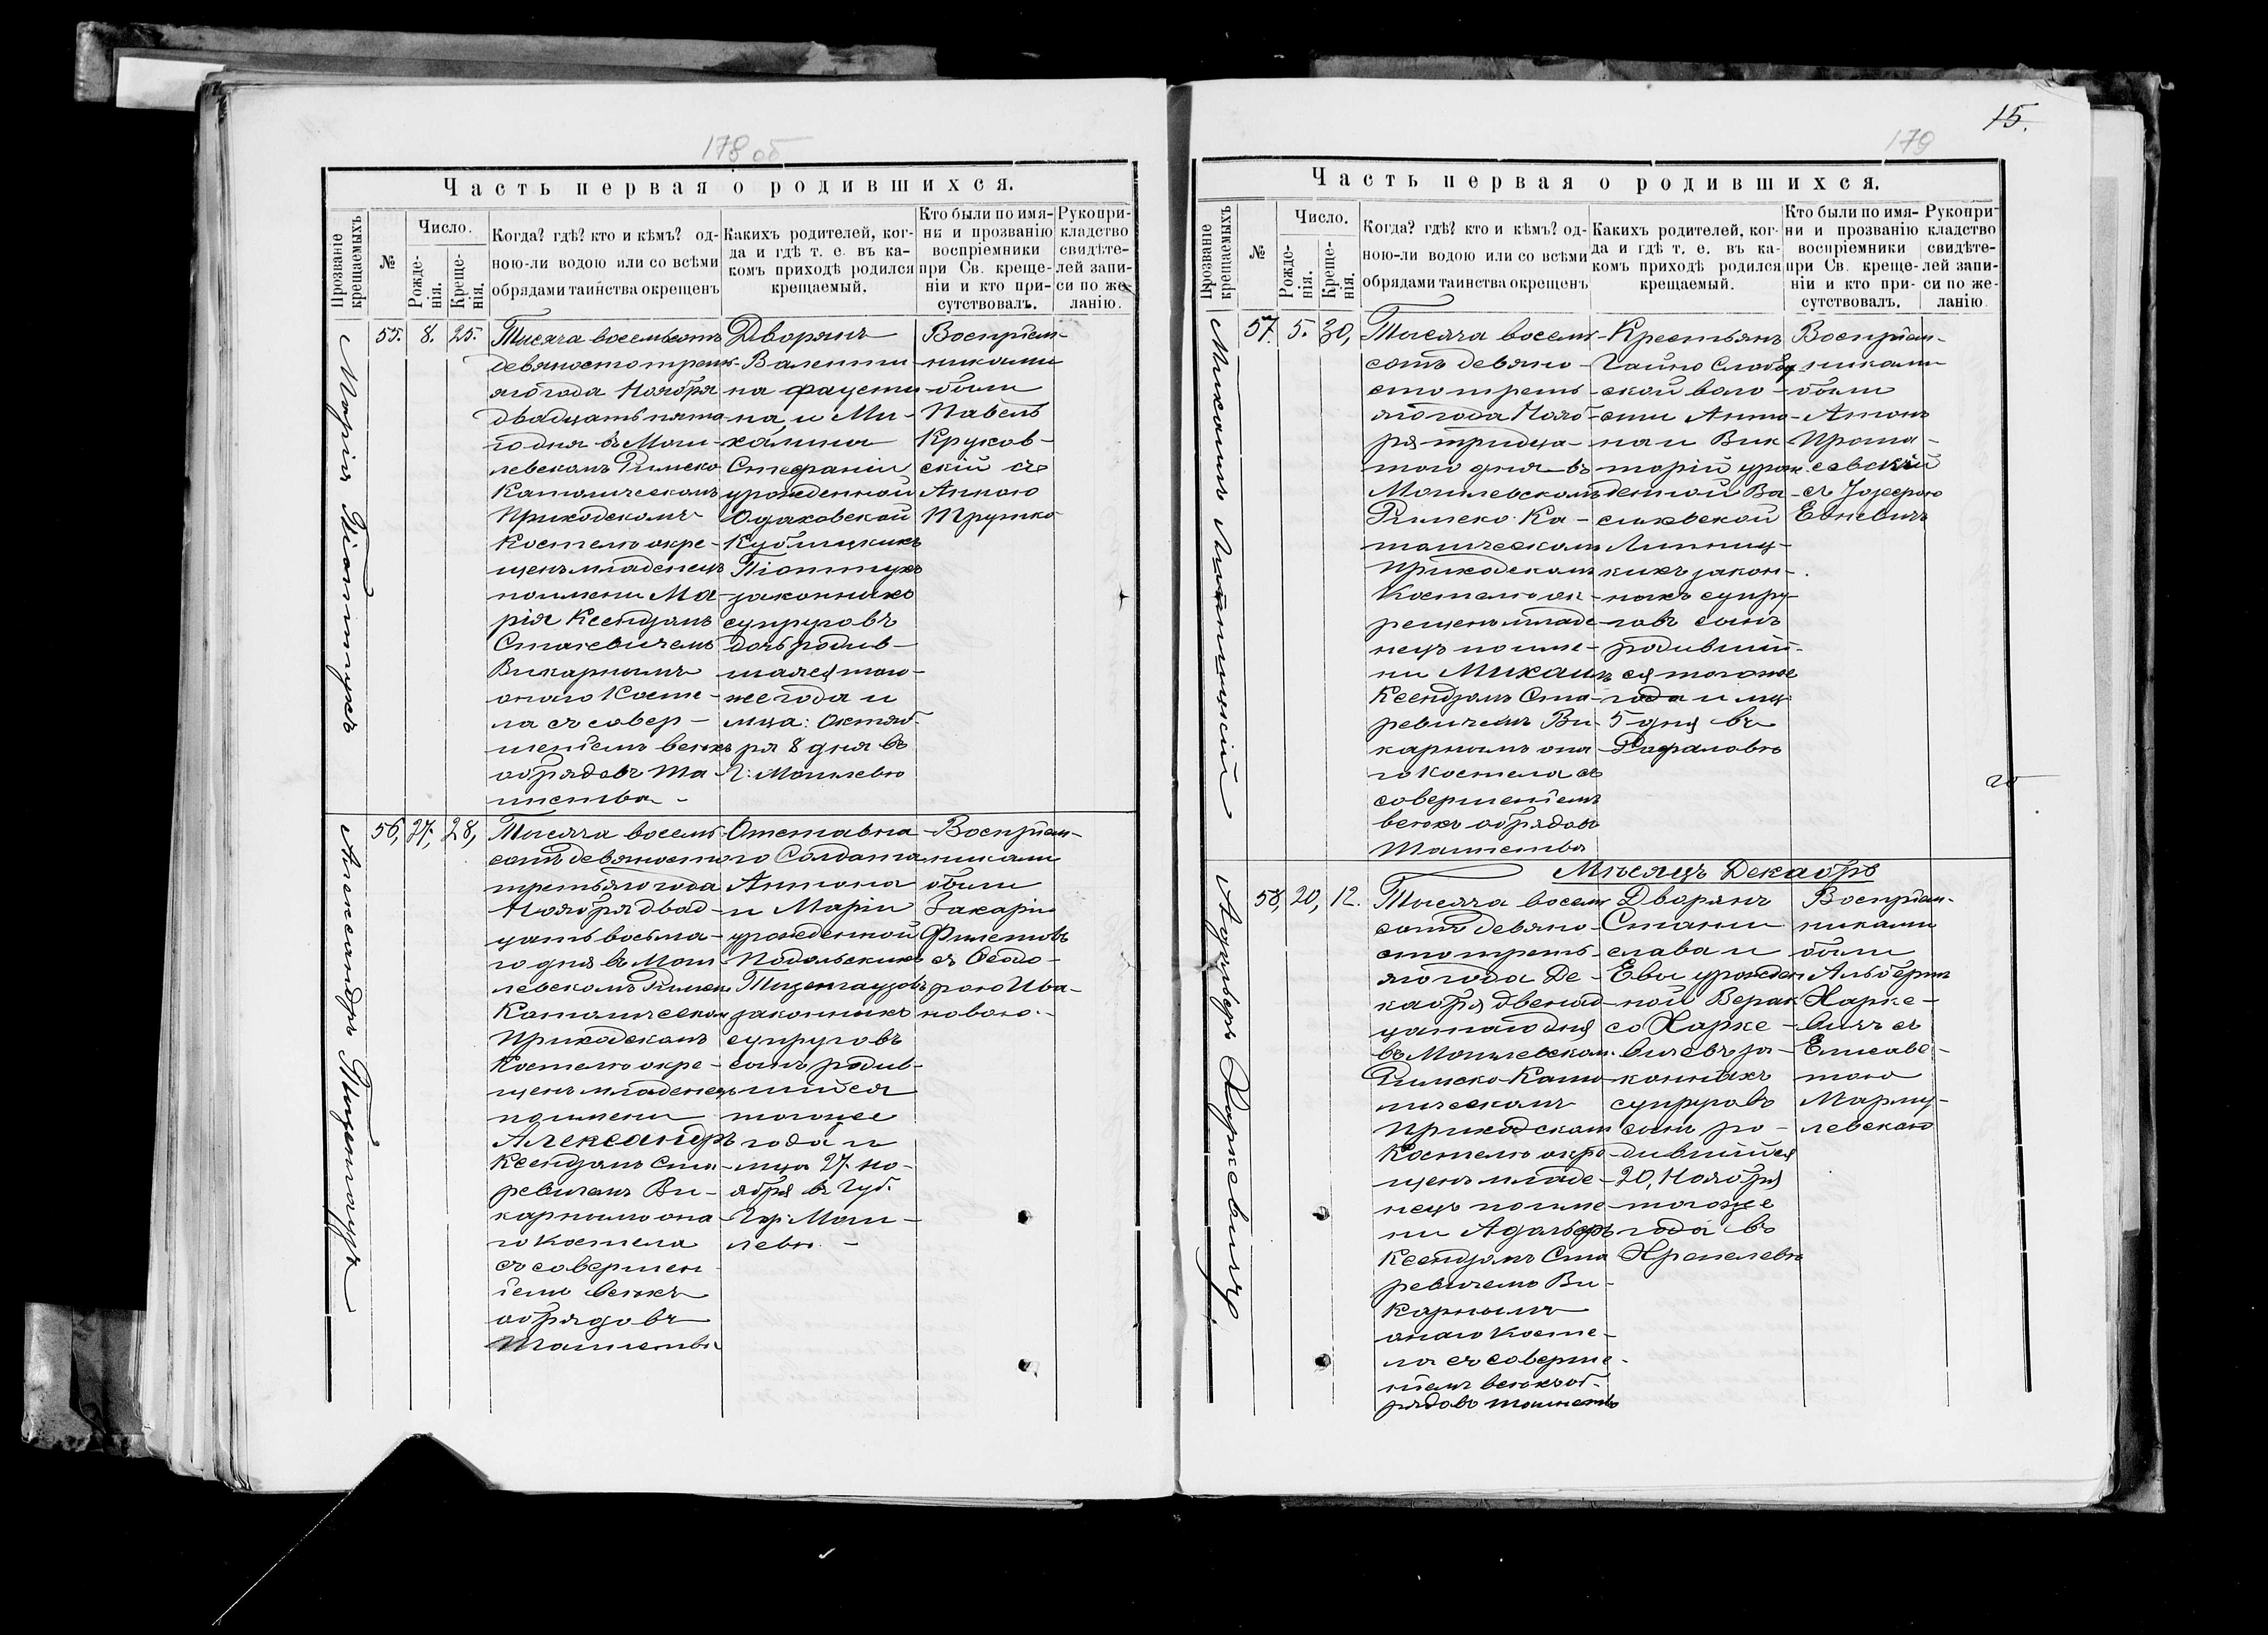 178 об
Часть первая о родившихся.
Прозваніе крещаемыхъ
№
Число.
Рожде-
нія.
Креще-
нія.
Когда? гдѣ? кто и кѣмъ? од-
ною-ли водою или со всѣми
обрядами таинства окрещенъ
Какихъ родителей, ког-
да и гдѣ т. е. въ ка-
комъ приходѣ родился
крещаемый.
Кто были по имя-
ни и прозванію
воспріемники
при Св. креще-
ніи и кто при-
сутствовалъ.
Рукопри-
кладство
свидѣте-
лей запи-
си по же-
ланію.
Марія
55. 8. 25.
Тысяча восемьсотъ
девяностотреть-
яго года Ноября
двадцать пята-
го дня въ Моги-
левскомъ Римско
Католическомъ
Приходскомъ
Костелѣ окре-
щенъ младенецъ
по имени Ма-
рія Ксендзомъ
Викарнымъ
онаго Косте-
ла съ совер-
шеніемъ всѣхъ
обрядовъ Та-
инства
Дворянъ
Валенти-
на Фаусти-
на и Ми-
халины
Стефаніи
урожденной
законныхъ
супруговъ
дочь родив-
шаяся того-
же года и
мца: Октяб-
ря 8 дня въ
Г: Могилевѣ
Воспріем-
никами
были
Павелъ
Круков-
скій съ
Анною
56, 27, 28,
Александръ
Тысяча восемь-
сотъ девяносто
третьяго года
Ноября двад-
цать восьма-
го дня въ Моги-
левскомъ Римско
Католическом
Приходскомъ
Костелѣ окре-
щенъ младенецъ
по имени
Александръ
Ксендзомъ Ста-
ревичемъ Ви-
карнымъ она-
го Костела
съ совершен-
іемъ всѣхъ
обрядовъ
Таинства
Отставна-
го Солдата
Антона
и Маріи
урожденной
Подольскихъ
законныхъ
супруговъ
сынъ родив-
шійся
тогоже
года и
мца 27. но-
ября въ Губ.
Гор: Моги-
левѣ. -
Воспріем-
никами
были
Захарій
Филиповъ
съ Ѳеодо-
рою Ива-
новою. -
15.
179
Часть первая о родившихся.
Прозваніе крещаемыхъ
№
Число.
Рожде-
нія.
Креще-
нія.
Когда? гдѣ? кто и кѣмъ? од-
ною-ли водою или со всѣми
обрядами таинства окрещенъ
Какихъ родителей, ког-
да и гдѣ т. е. въ ка-
комъ приходѣ родился
крещаемый.
Кто были по имя-
ни и прозванію
воспріемники
при Св. креще-
ніи и кто при-
сутствовалъ.
Рукопри-
кладство
свидѣте-
лей запи-
си по же-
ланію.
Михаилъ Липницкій
57. 5. 30,
Тысяча восемь-
сотъ девяно-
сто треть-
яго года Нояб-
ря тридца-
того дня въ
Могилевскомъ
Римско Ка-
толическомъ
Приходскомъ
Костелѣ ок-
рещенъ младе-
нецъ по име-
ни Михаилъ
Ксендзомъ Ста-
ревичемъ Ви-
карнымъ она-
го Костела съ
совершеніемъ
всѣхъ обрядовъ
Таинства
Крестьянъ
ской воло-
сти Анто-
на и Вик-
торіи урож-
денной Ва-
силевской
Липниц-
кихъ закон-
ныхъ супру-
говъ сынъ
родившій-
ся тогоже
года и мца
5 дня въ
Рафаловѣ
Воспріем-
никами
были
Антонъ
съ Іозефою
Мѣсяцъ Декабрь
Адальберъ Харкевичъ.
58, 20, 12.
Тысяча восемь
сотъ девяно-
сто треть-
яго года Де-
кабря двенад-
цатаго дня
въ Могилевском.
Римско-Като-
лическомъ
Приходскомъ
Костелѣ окре-
щенъ младе-
нецъ по име-
ни Адальберъ
Ксендзомъ Ста
ревичемъ Ви-
карнымъ
онаго Косте-
ла съ соверше-
ніемъ всѣхъ об-
рядовъ таинств
Дворянъ
Стани-
слава и
Евы урожден
ной Верак
со Харке-
вичевъ за-
конныхъ
супруговъ
сынъ ро-
дившійся
20, Ноября
тогоже
года въ
Воспріем-
никами
были
Альбертъ
Харке-
вичъ съ
Елисаве-
тою